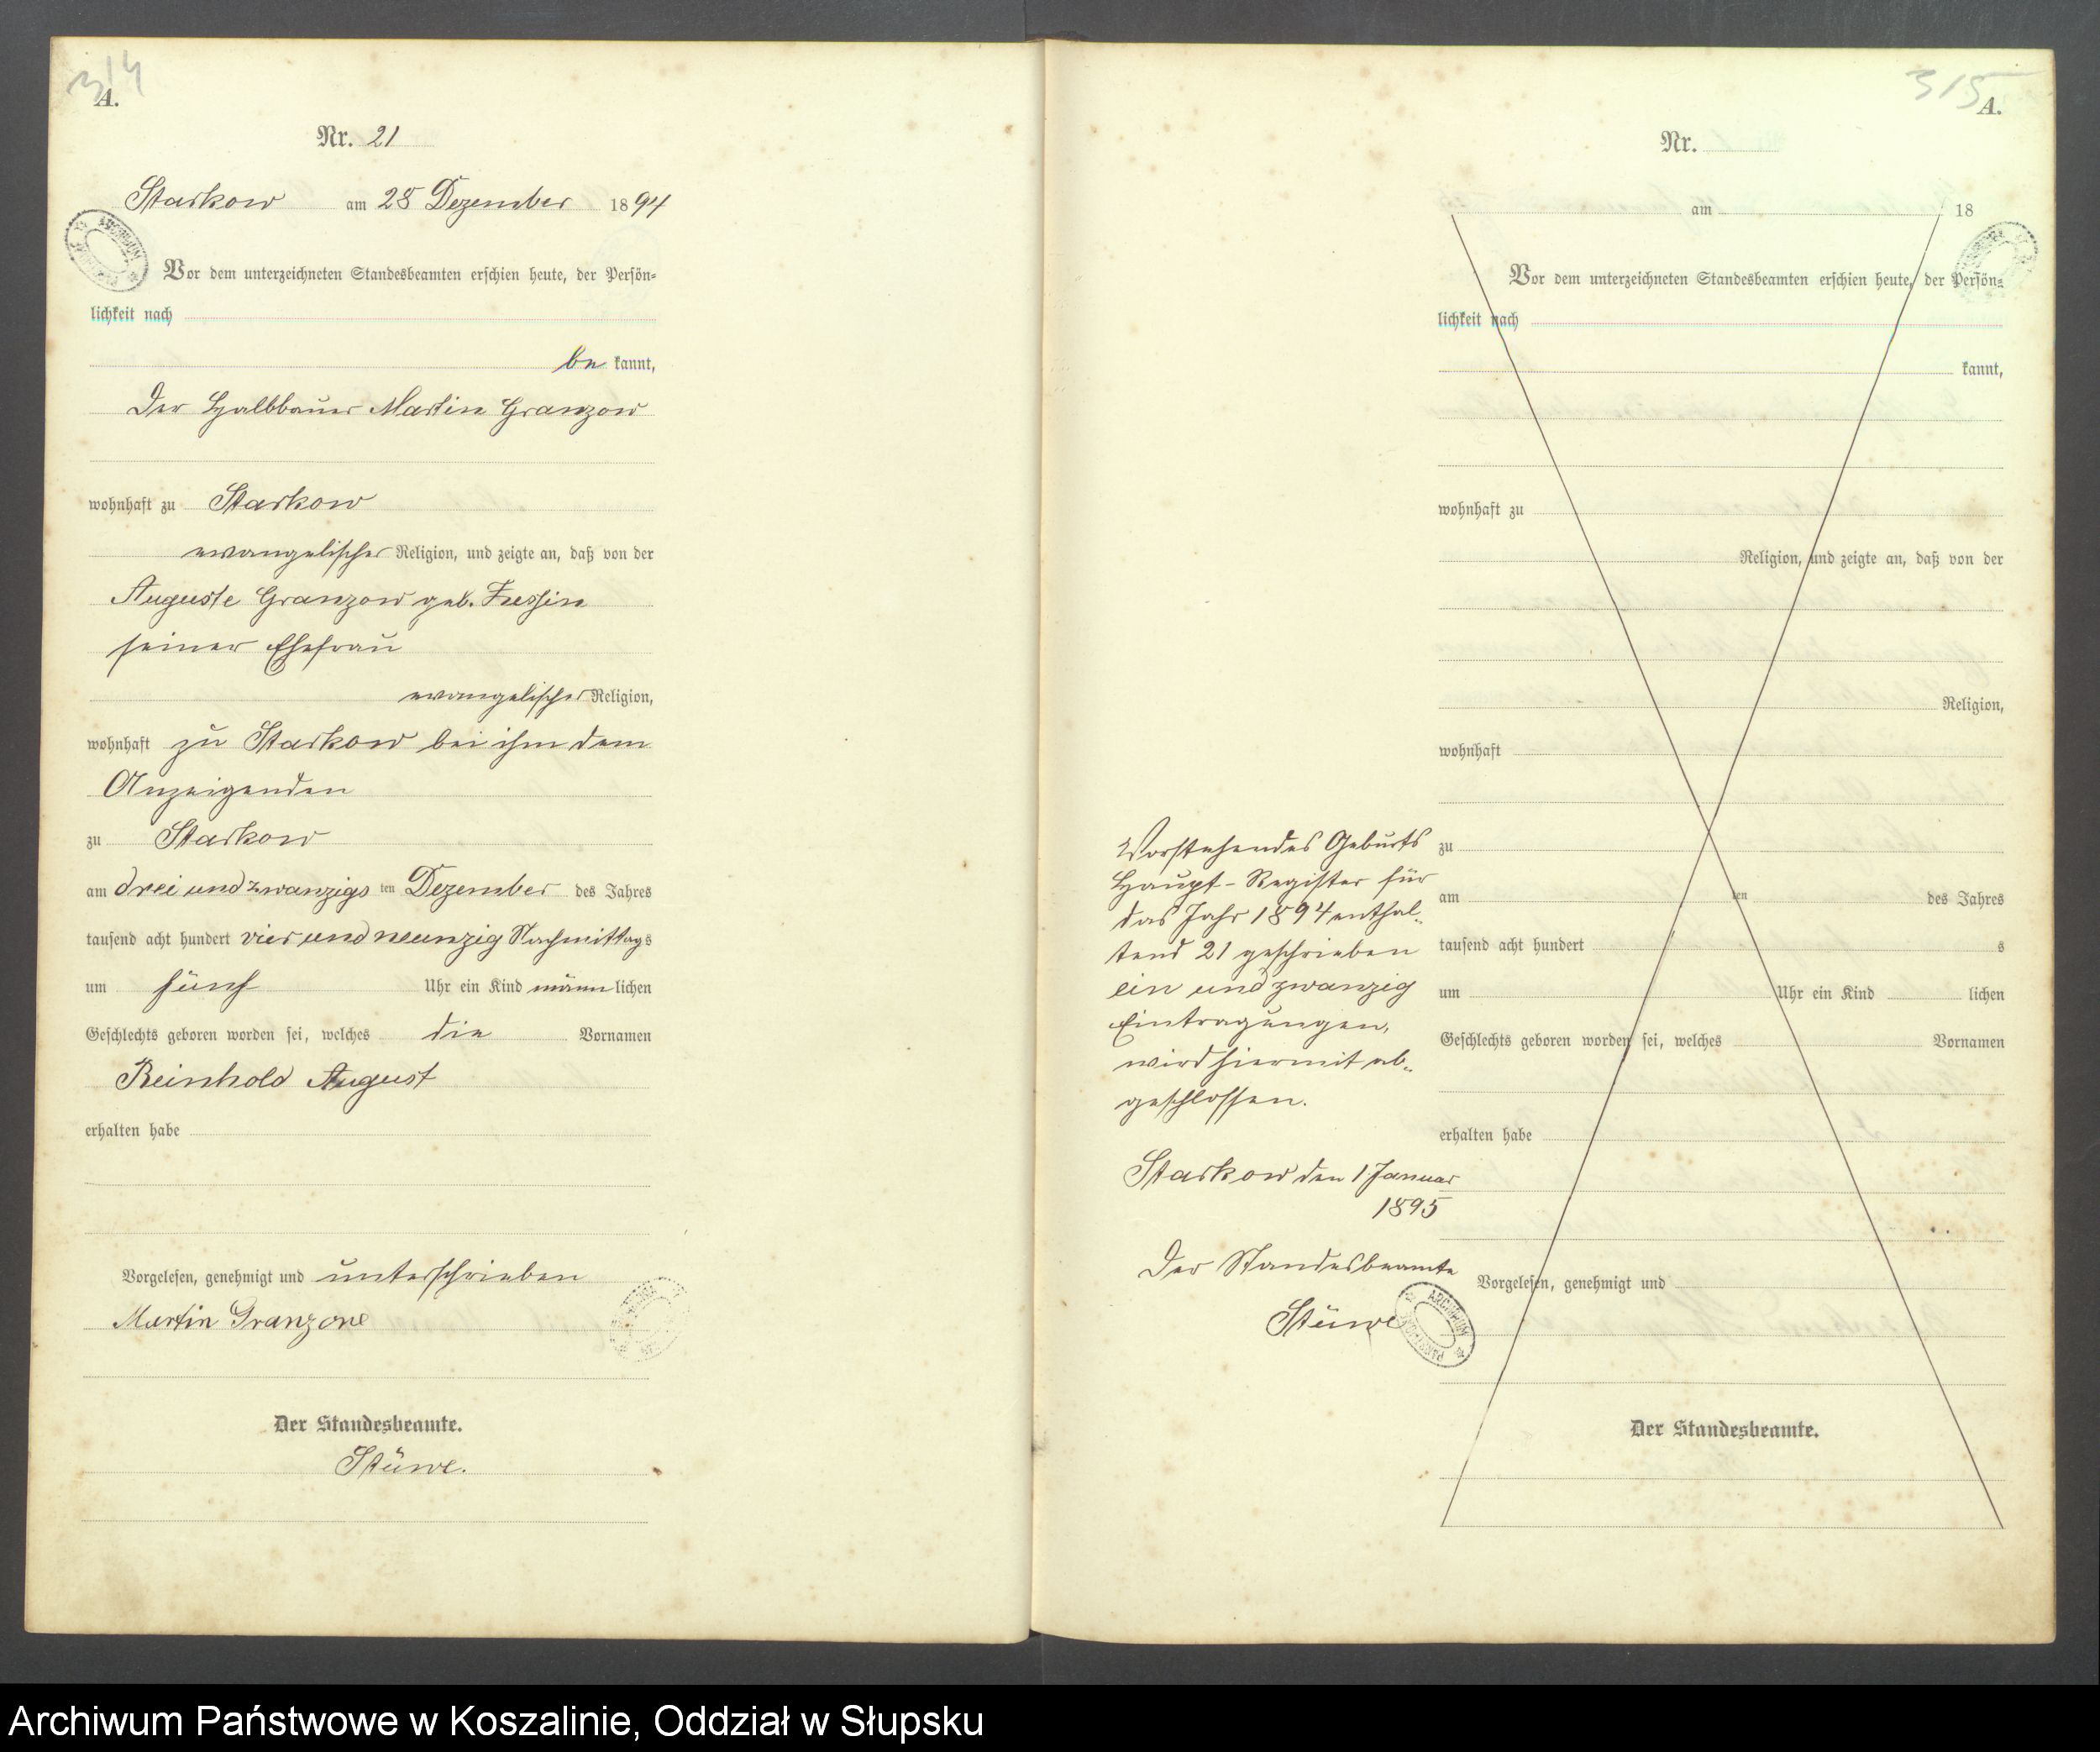 314
A.
Nr. 21
Starkow am 28 Dezember 1894
Vor dem unterzeichneten Standesbeamten erschien heute, der Persön-
lichkeit nach
be kannt,
Der Halbbauer Martin Granzow
wohnhaft zu Starkow
evangelischer Religion, und zeigte an, daß von der
Auguste Granzow geb.
seiner Ehefrau
evangelischer Religion,
wohnhaft zu Starkow bei ihm dem
Anzeigenden
zu Starkow
am drei und zwanzigs ten Dezember des Jahres
tausend acht hundert vier und neunzig Nachmittags
um fünf Uhr ein Kind männ lichen
Geschlechts geboren worden sei, welches die Vornamen
Reinhold August
erhalten habe
Vorgelesen, genehmigt und unterschrieben
Martin Granzow
Der Standesbeamte.
Stüwe.
315
A.
Nr.
am 18
Vor dem unterzeichneten Standesbeamten erschien heute, der Persön-
lichkeit nach
kannt,
wohnhaft zu
Religion, und zeigte an, daß von der
Religion,
wohnhaft
zu
am ten des Jahres
tausend acht hundert s
um Uhr ein Kind lichen
Geschlechts geboren worden sei, welches Vornamen
erhalten habe
Vorgelesen, genehmigt und
Der Standesbeamte.
Vorstehendes Geburts
Haupt-Register für
das Jahr 1894 enthal-
tend 21 geschrieben
ein und zwanzig
Eintragungen,
wird hiermit ab-
geschlossen.
Starkow den 1 Januar
1895
Der Standesbeamte
Stüwe
ARCHIWUM
Archiwum Państwowe w Koszalinie, Oddział w Słupsku